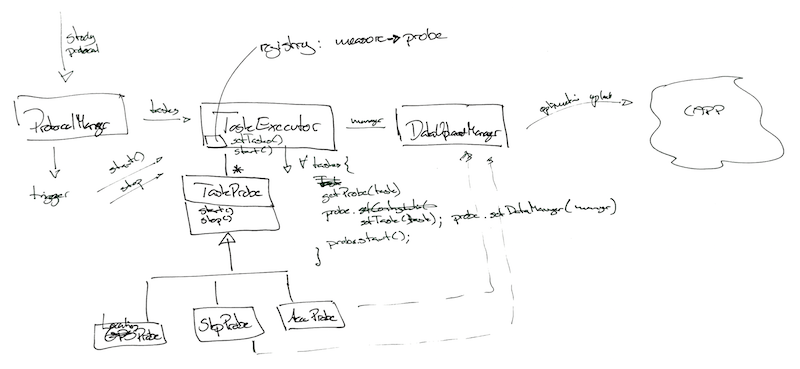 study
protocol
registry: measure → probe
ProtocolManger
tasks
TaskExecutor
setTasks()
start()
manager
DataUploadManager
opportunistic upload
CAPP
trigger
start()
stop
*
TaskProbe
start()
stop()
∀ tasks {
getProbe(task)
probe.
setTask(task); probe.setDataManager(manager)
probe.start();
}
Location
Probe
StepProbe
AccProbe